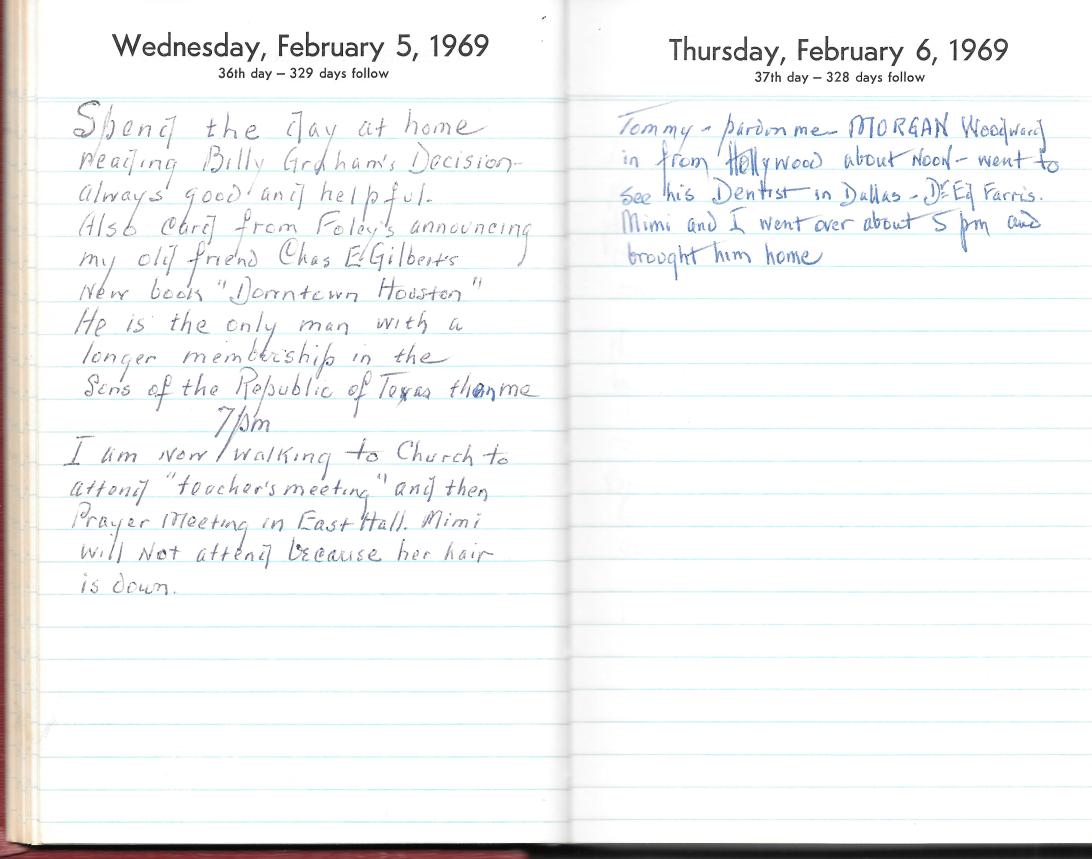 Wednesday, February 5, 1969
36th day – 329 days follow
Spend the day at home
reading Billy Graham's Decision-
always good and helpful.
Also card from Foley's announcing
my old friend Chas E Gilbert's
New book "Downtown Houston"
He is the only man with a
longer membership in the
Sons of the Republic of Texas than me
7pm
I am now walking to Church to
attend "teacher's meeting" and then
Prayer Meeting in East Hall. Mimi
will Not attend because her hair
is down.
Thursday, February 6, 1969
37th day – 328 days follow
Tommy - pardon me - MORGAN Woodward
in from Hollywood about Noon - went to
see his Dentist in Dallas - Dr Ed Farris.
Mimi and I went over about 5 pm and
brought him home